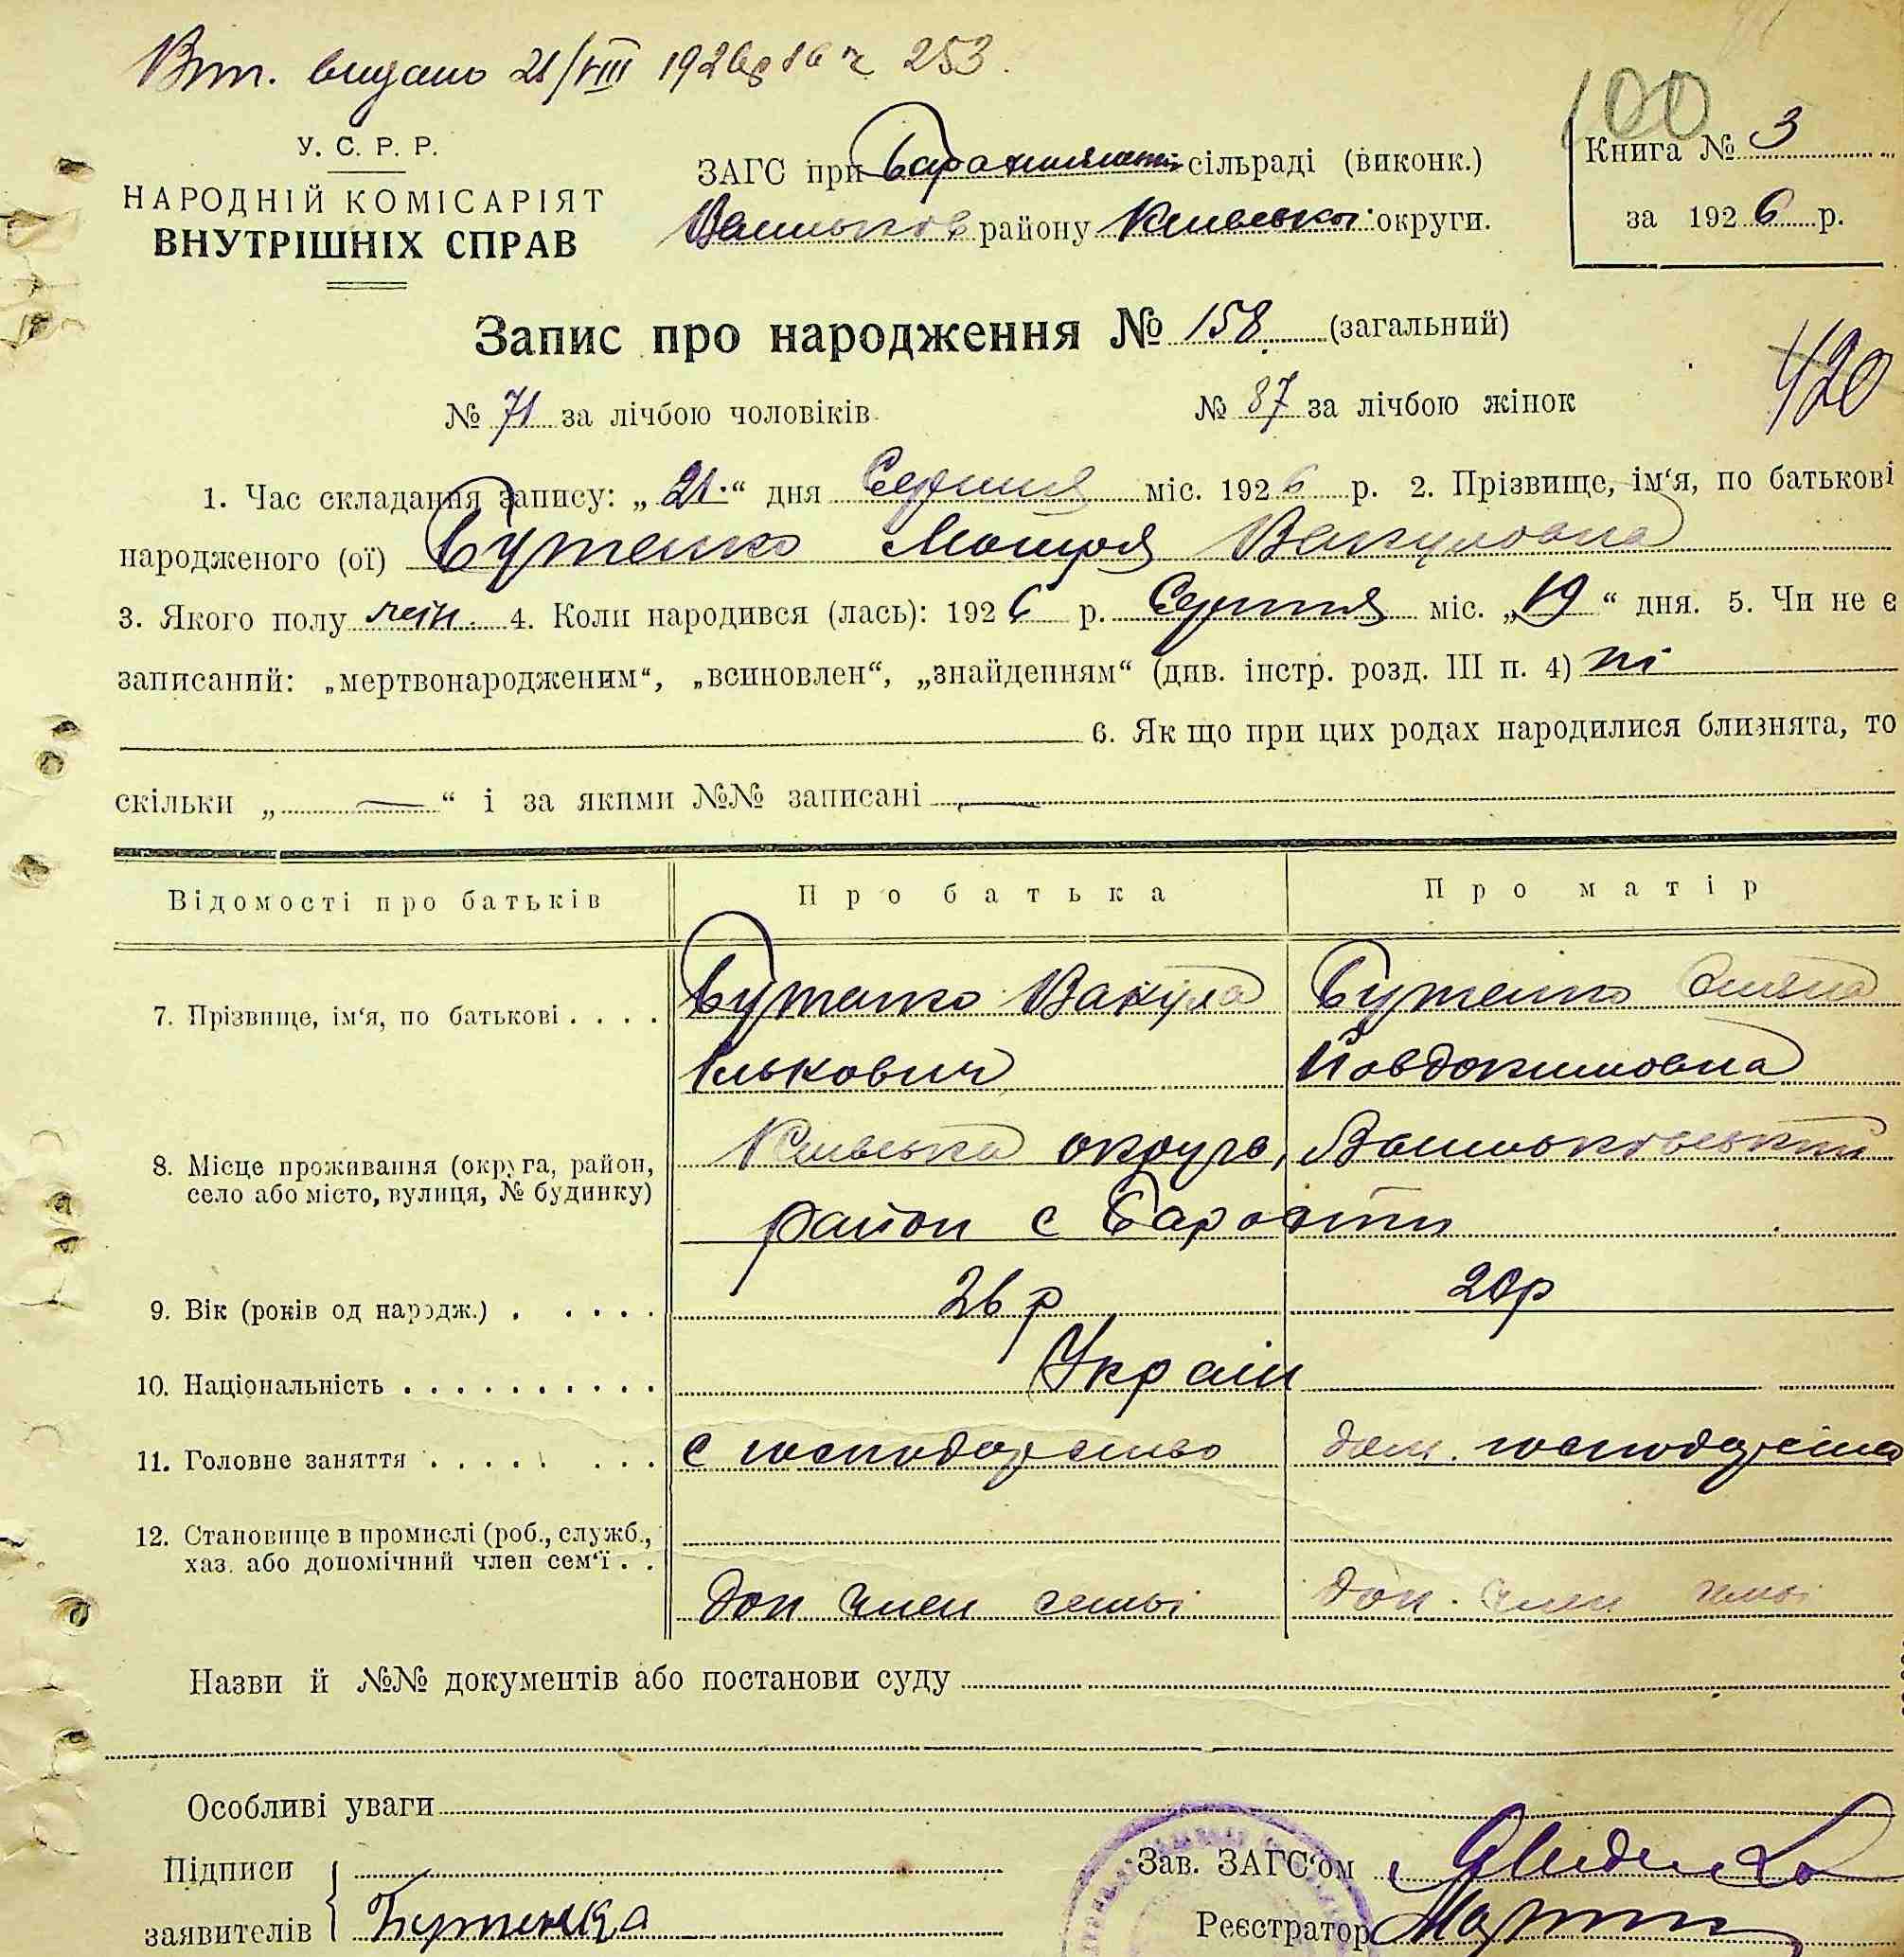 Вит. видано 21/VIII 1926 р за № 253.
100
У. С. Р. Р.
НАРОДНІЙ КОМІСАРІЯТ
ВНУТРІШНІХ СПРАВ
ЗАГС при сільраді (виконк.)
Васильков району Київської округи.
Книга № 3
за 1926 р.
Запис про народження № 158 (загальний)
420
№ 71 за лічбою чоловіків
№ 87 за лічбою жінок
1. Час складання запису: „21“ дня Серпня міс. 1926 р. 2. Прізвище, ім‘я, по батькові
народженого (ої) Бутенко Мотря Вакуловна
3. Якого полу жін. 4. Коли народився (лась): 1926 р. Серпня міс. „19“ дня. 5. Чи не є
записаний: „мертвонародженим“, „всиновлен“, „знайденням“ (див. інстр. розд. III п. 4) ні
6. Як що при цих родах народилися близнята, то
скільки „ — “ і за якими №№ записані —
Відомості про батьків
Про батька
Про матір
7. Прізвище, ім‘я, по батькові . . . .
Бутенко Вакула
Ількович
Бутенко
Йовдокимовна
8. Місце проживання (округа, район,
село або місто, вулиця, № будинку)
Київська округа, Васильковський
район с Барахти
9. Вік (років од народж.) . . . . .
26 р
20р
10. Національність . . . . . . . . . .
Україн
11. Головне заняття . . . . . . . .
с господарство
дом. господарство
12. Становище в промислі (роб., служб.,
хаз. або допомічний член сем‘ї . .
Доп член семьі
доп. член семьі
Назви й №№ документів або постанови суду
Особливі уваги
Підписи
заявителів
Бутенка
Зав. ЗАГС‘ом
Реєстратор